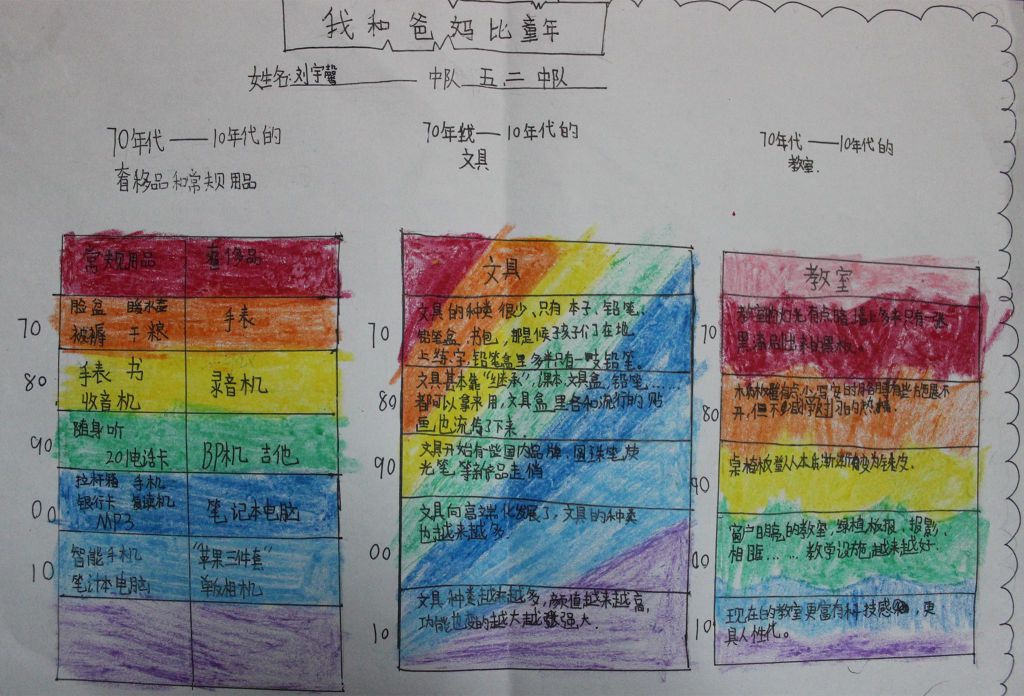 我和爸妈比童年
姓名:刘宇馨 中队 五.二中队
70年代——10年代的
奢移品和常规用品
常规用品 奢侈品
70 脸盆 暖水壶 手表
被褥 干粮
80 手表 书 录音机
收音机
90 随身听 BP机 吉他
201电话卡
00 拉杆箱 手机 笔记本电脑
银行卡 复读机
MP3
10 智能手机 “苹果三件套”
笔计本电脑 单反相机
70年代—10年代的
文具
文具
70 文具的种类很少、只有本子、铅笔、
铅笔盒、书包,那是候子孩子们在地
上练字,铅笔盒里多半只有一吱铅笔
80 文具基本靠“继承”,课本、文具盒、铅笔...
都可以拿来用,文具盒里各和流行的贴
画,也流传了下来
90 文具开始有些国内品牌,圆珠笔、荧
光笔等新品走俏
00 文具向高端化发展了,文具的种类
也越来越多.
10 文具种类越来越多,颜值越来越高,
功能也变的越大越强大.
70年代——10年代的
教室.
教室
70 教室的灯光有点暗,墙上多半只有一张
黑漆刷出来的黑板。
80
开,但不减学习的热情
90 桌椅
00 窗户明亮的教室,绿植、板报、投影、
相框……教学设施越来越好.
10 现在的教室更富有科技感,更
具人性化。